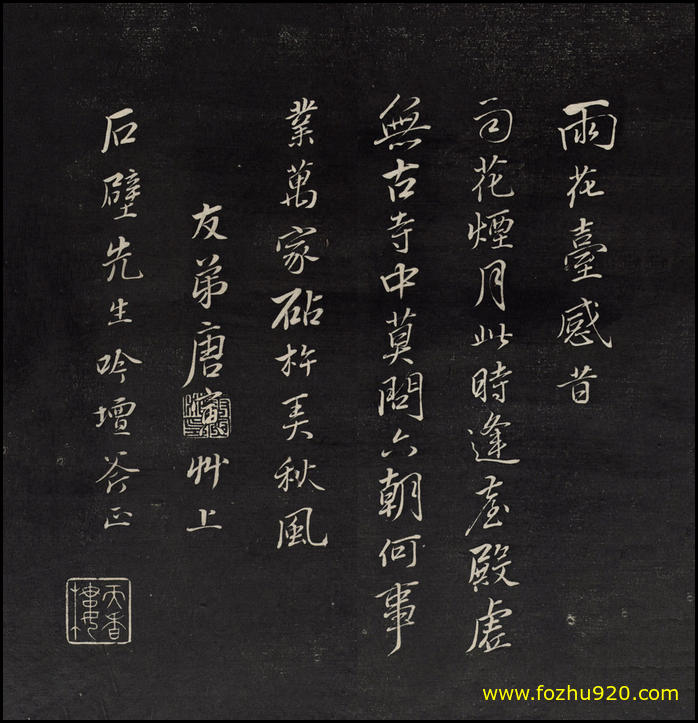 雨花臺感昔
司花煙月此時逢臺殿虛
無古寺中莫問六朝何事
業萬家砧杵美秋風
友弟唐寅艸上
石壁先生吟壇荅正
天香樓
www.fozhu920.com